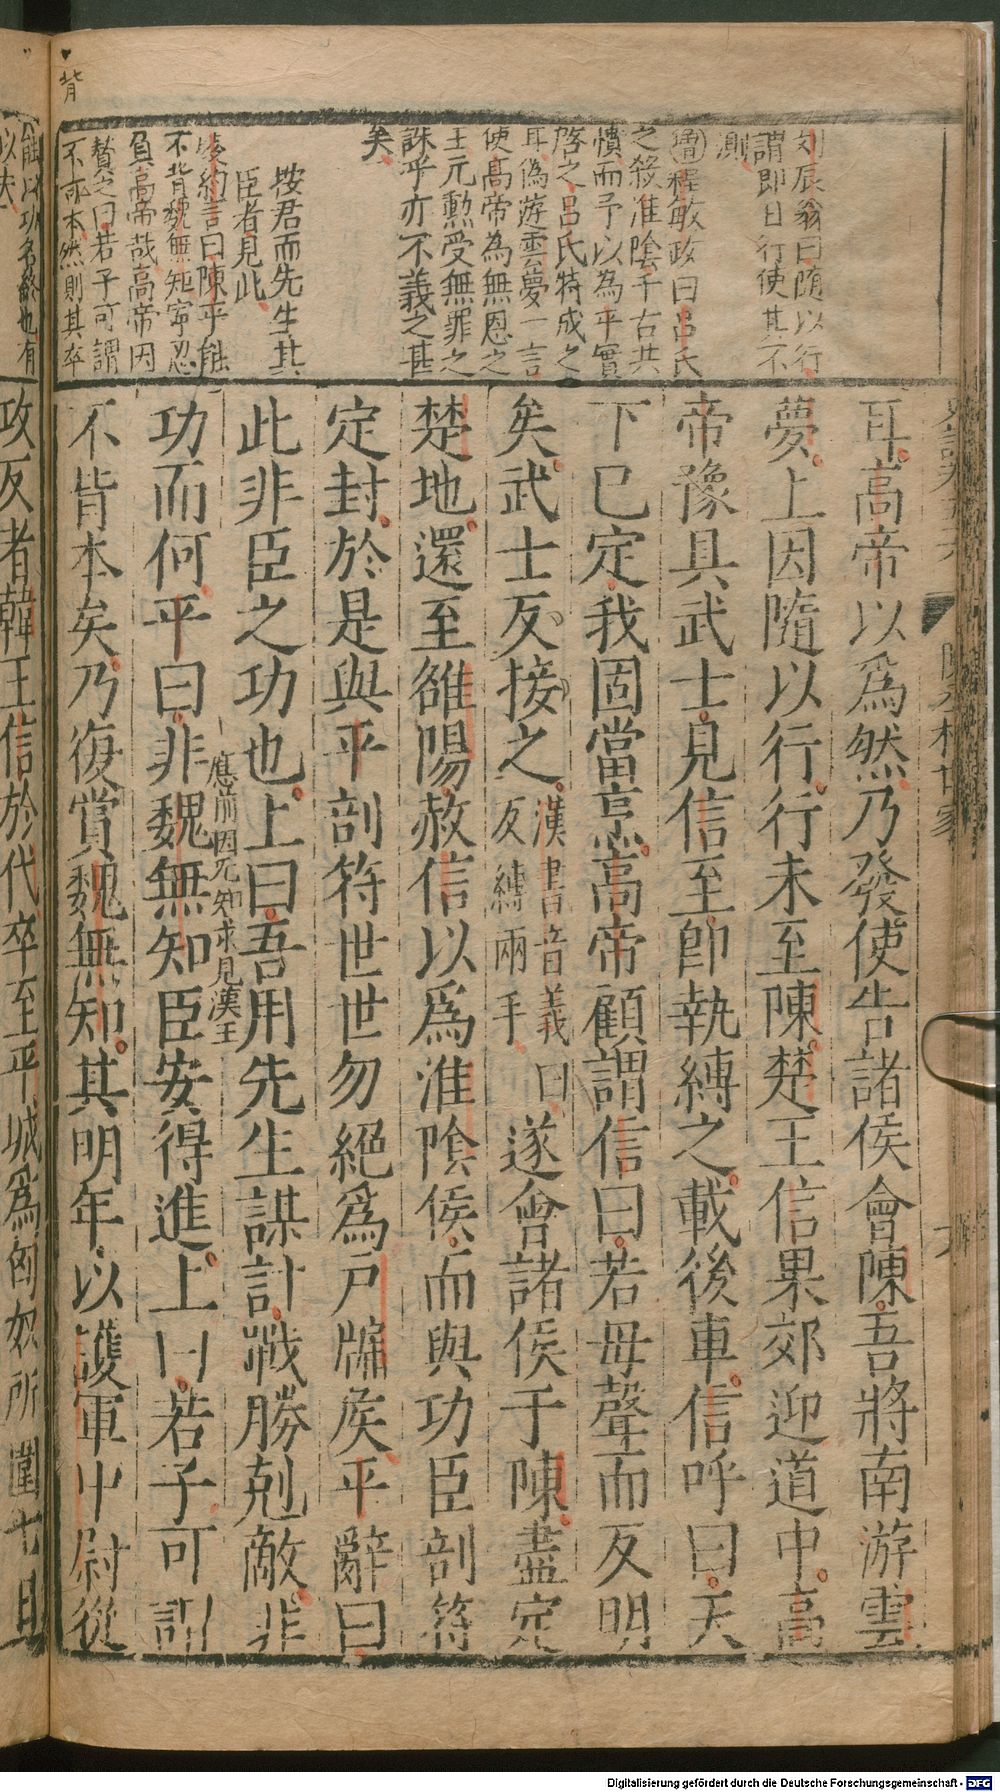 背
刘辰翁曰隨以行
謂即日行使其不
測
增程敏政曰吕氏
之殺淮陰千古共
憤而予以為平實
啓之吕氏特成之
耳偽遊雲夢一言
使高帝為無恩之
王元勲受無罪之
誅乎亦不義之甚
矣
按君而先生其
臣者見此
凌約言曰陳平能
不背魏無知寧忍
負高帝哉高帝因
賛之曰若子可謂
不背本然則其卒
能以功名終也有
以夫
耳高帝以爲然乃發使告諸侯會陳吾將南游雲
夢上因隨以行行未至陳楚王信果郊迎道中高
帝豫具武士見信至即執縛之載後車信呼曰天
下已定我固當烹高帝顧謂信曰若毋聲而反明
矣武士反接之漢書音義曰反縛兩手遂會諸侯于陳盡定
楚地還至雒陽赦信以爲淮陰侯而與功臣剖符
定封於是與平剖符世世勿絕爲戶牖侯平辭曰
此非臣之功也上曰吾用先生謀計戰勝剋敵非
應前因无知求見漢王
功而何平曰非魏無知臣安得進上曰若子可謂
不背本矣乃復賞魏無知其明年以護軍中尉從
攻反者韓王信於代卒至平城爲匈奴所圍七日
Digitalisierung gefördert durch die Deutsche Forschungsgemeinschaft - DFG